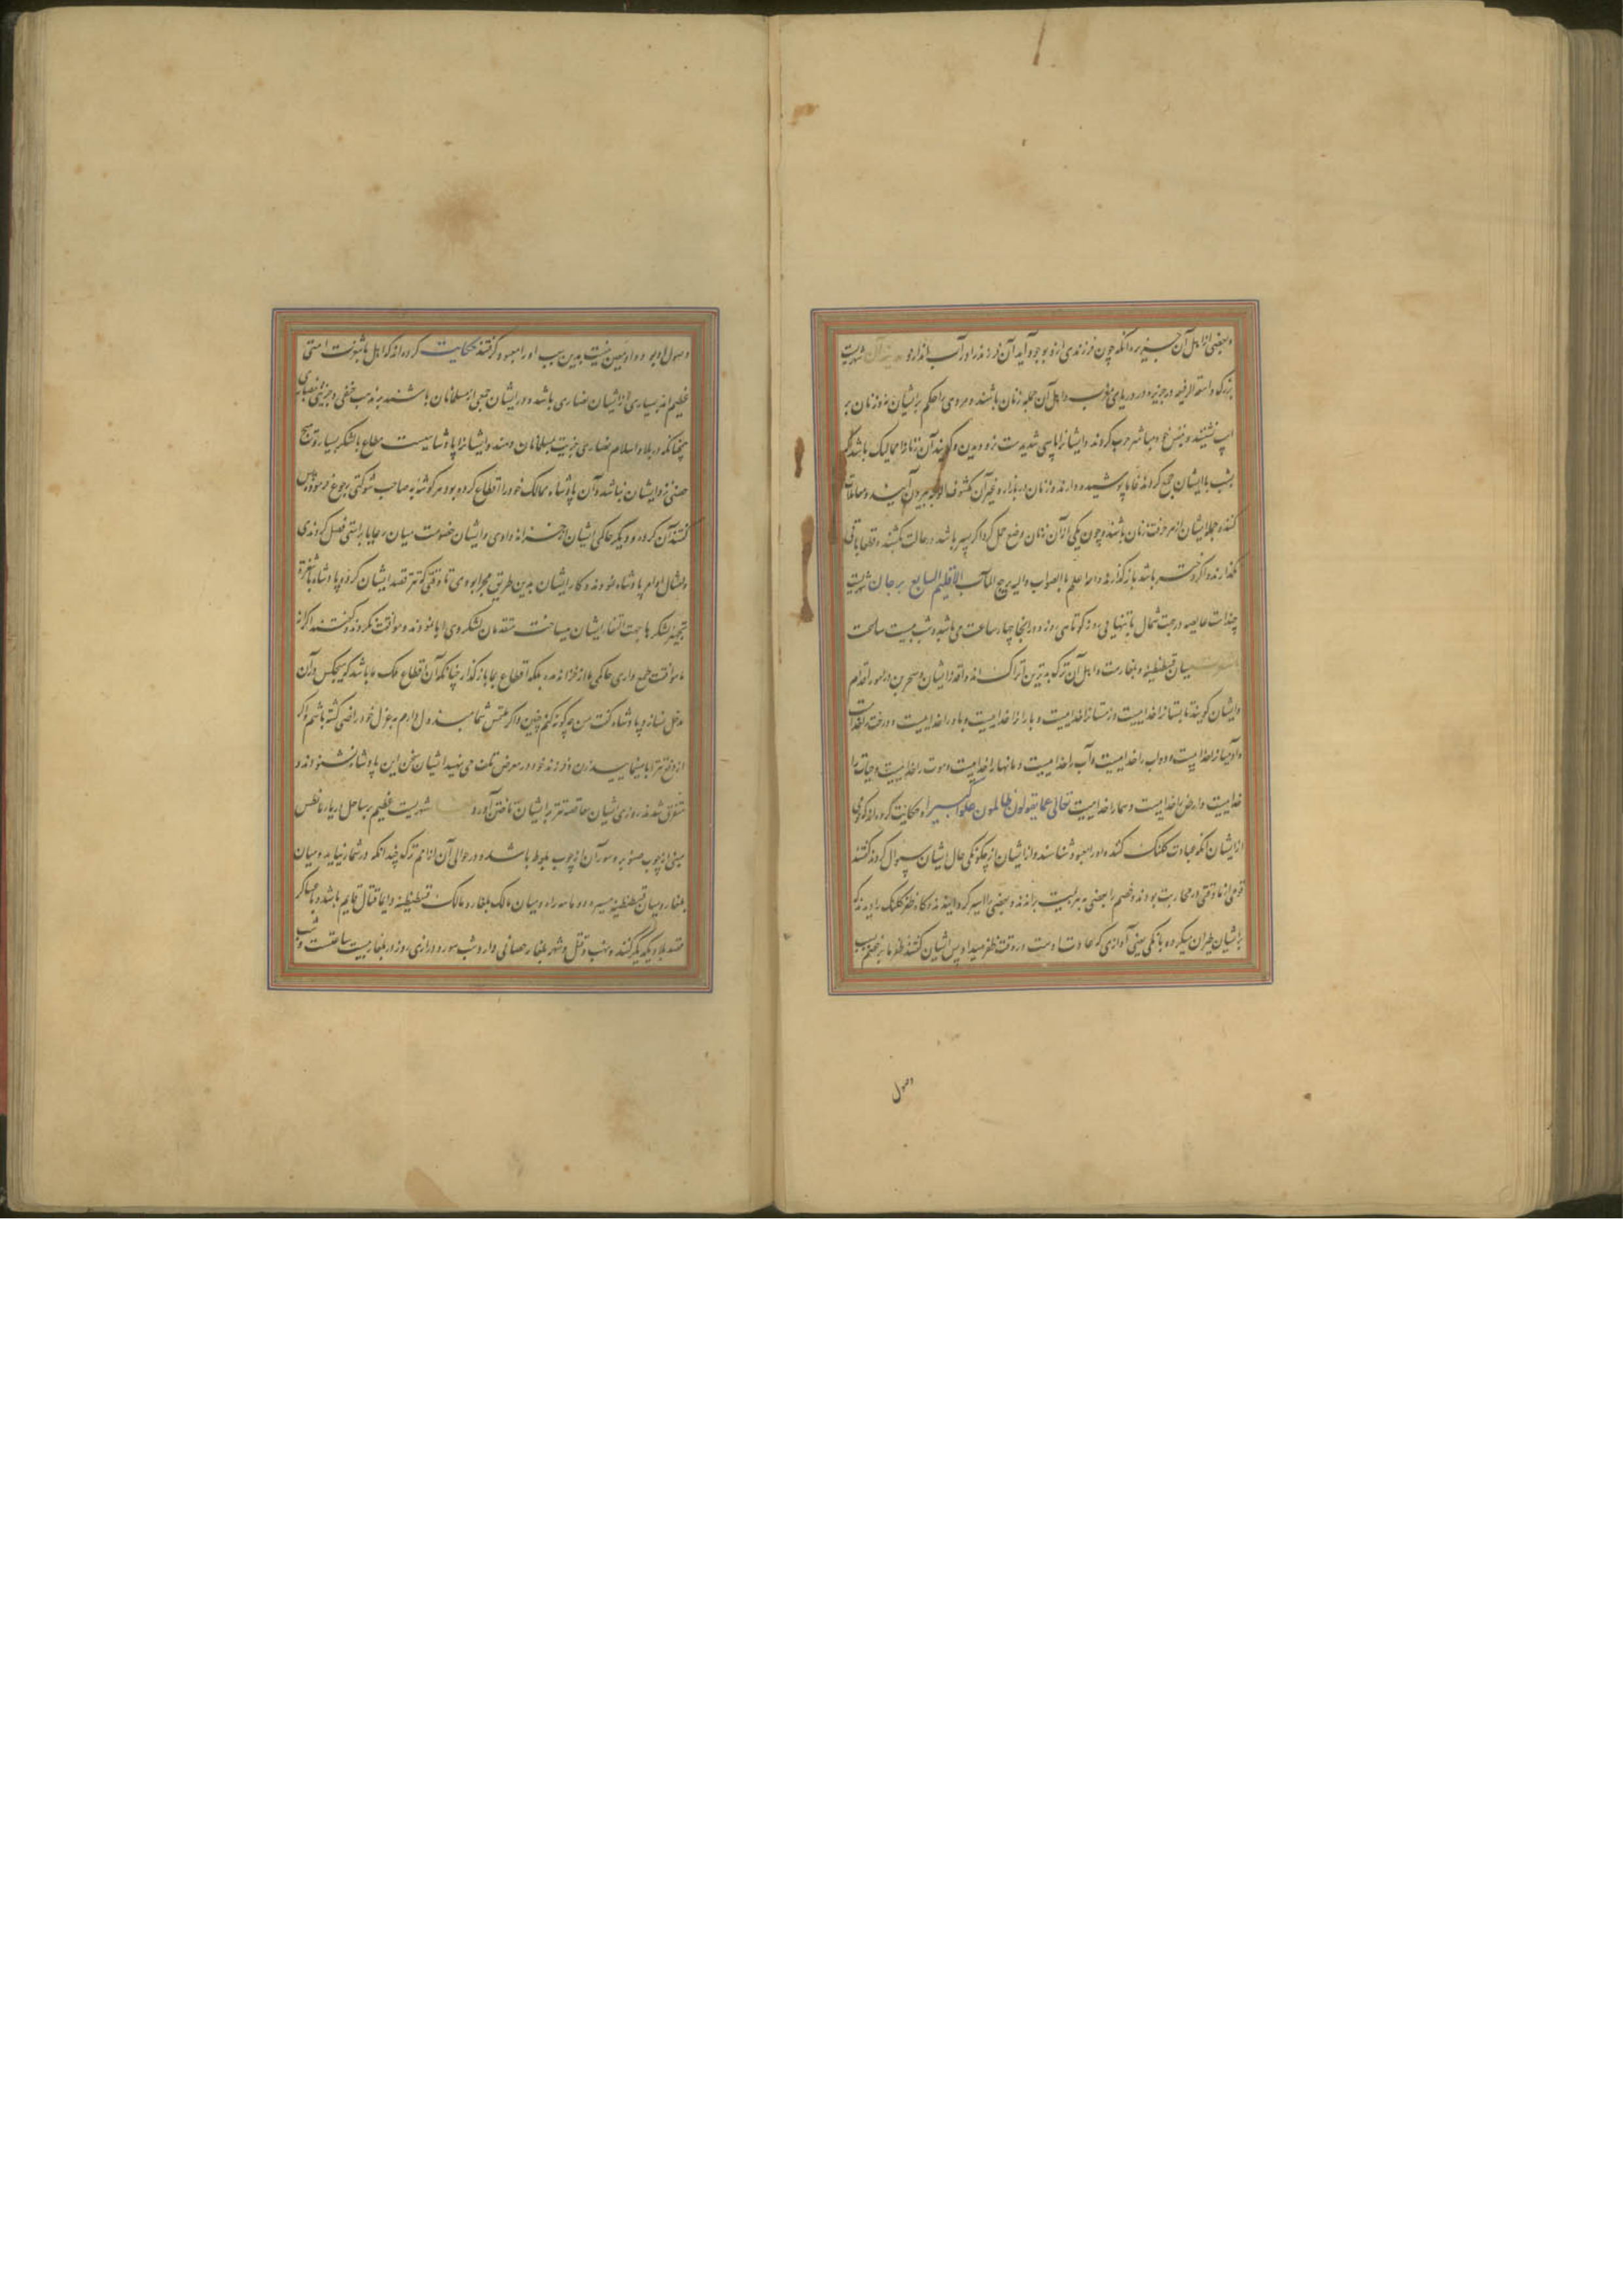 وبعضی از اهل آن جزیره آنکه چون فرزندی از او بوجود آید آن فرزند را در آب اندازد مدینه آن شهریست
بزرگ واسعة الرقعه در جزیره در دریای مغرب و اهل آن جمله زنان باشند و مردی را حکم بر ایشان نه و زنان بر
اسب نشینند و بنفس خود مباشر حرب کردند و ایشانرا باسی شدیدست نزد دیدن و گویند آن زنانرا ممالیک باشد که
بشب با ایشان جمع کردند
کنند و جمله ایشان از حرفت زنان باشند و چون یکی از آن زنان وضع حمل کرد اگر پسر باشد در حالت بکشند و قطعا باقی
نگذارند و اگر دختر باشد باز گذارند والله اعلم بالصواب والیه یرجع المآب الاقلیم السابع برجان شهریست
در جهت شمال بانتهایی روز کوتاهی روز در آنجا چهار ساعت می باشد و شب بیست ساعت
باشغرت میان قسطنطنیه و بلغارست و اهل آن ترک بدترین اتراک اند و اقذر ایشان و
وایشان گویند تابستانرا خداییست و زمستانرا خداییست و بارانرا خداییست و باد را خداییست و درخت را خداییست
و آدمیانرا خداییست و دواب را خداییست و آب را خداییست و لیل و نهار را خداییست و موت را خداییست و حیات را
خداییست و ارض را خداییست و سما را خداییست تعالی عما یقولون الظالمون علوا کبیرا و حکایت کرده اند که قومی
از ایشان آنکه عبادت کلنگ کنند و او را معبود شناسند و از ایشان از چگونگی حال ایشان سوال کردند گفتند
قومی از ما وقتی در محاربت بودند و خصم را بعضی به هزیمت براندند و بعضی را اسیر گردانیدند و کاه ظفر کلنگ را دیدند که
بر ایشان طیران میکرد و بانگی یعنی آوازی که عادت اوست در وقت ظفر میداد پس ایشان گفتند ظفر ما بر خصم بسبب
وصول
وصول او بود و او معین نیست بدین سبب او را معبود گرفتند حکایت کرده اند که اهل باشغرت امتی
عظیم اند بسیاری از ایشان نصاری باشد و در ایشان جمعی از مسلمانان باشند بر مذهب حنفی و جزیتی نصاری
چنانکه در بلاد اسلام نصاری جزیت بمسلمانان دهند و ایشانرا پادشاهیست مطاع با لشکر بسیار و هیچ
حصنی نزد ایشان نباشد و آن پادشاه ممالک خود را اقطاع کرده بود هر گوشه به صاحب شوکتی رجوع فرموده پس
گفتند آن کرده و دیگر حاکمی ایشان از خزانه دادی و ایشان خصومت میان رعایا براستی فصل کردندی
و امتثال اوامر پادشاه نمودند و کار ایشان بدین طریق مجرا بودی تا وقتی که تتر قصد ایشان کرد و پادشاه باشغرت
تجهیز لشکرها جهت التقا ایشان میساخت مقدمان لشکر وی ابا نمودند و موافقت نکردند و گفتند اگر از
ما موافقت طمع داری حاکمی ما از خزانه مده بلکه اقطاع بما باز گذار چنانکه آن اقطاع ملک ما باشد که هیچکس در آن
مدخل نسازد پادشاه گفت من چگونه کنم چنین و اگر ملتمس شما مبذول دارم به عزل خود راضی گشته باشم و اگر
از دفع تتر ابا مینمایید زن و فرزند خود در معرض تلف می نهید ایشان سخن این پادشاه نشنودند و
متفرق شدند روزی ایشان صاعقه تتر بر ایشان تاختن آورد شهریست عظیم بر ساحل دریا
مبنی از چوب صنوبر و سور آن از چوب بلوط باشد و در حوالی آن از امم ترک چندانکه در شمار نیاید و میان
بلغار و میان قسطنطنیه مسیره دو ماهه راه و میان ملک بلغار و ممالک قسطنطنیه دایما قتال قایم باشد و با عساکر
قصد بلاد یکدیگر کنند و نهب و قتل و شهر بلغار حصانی دارد و شب و درازی روز در بلغار بیست ساعتست و شب